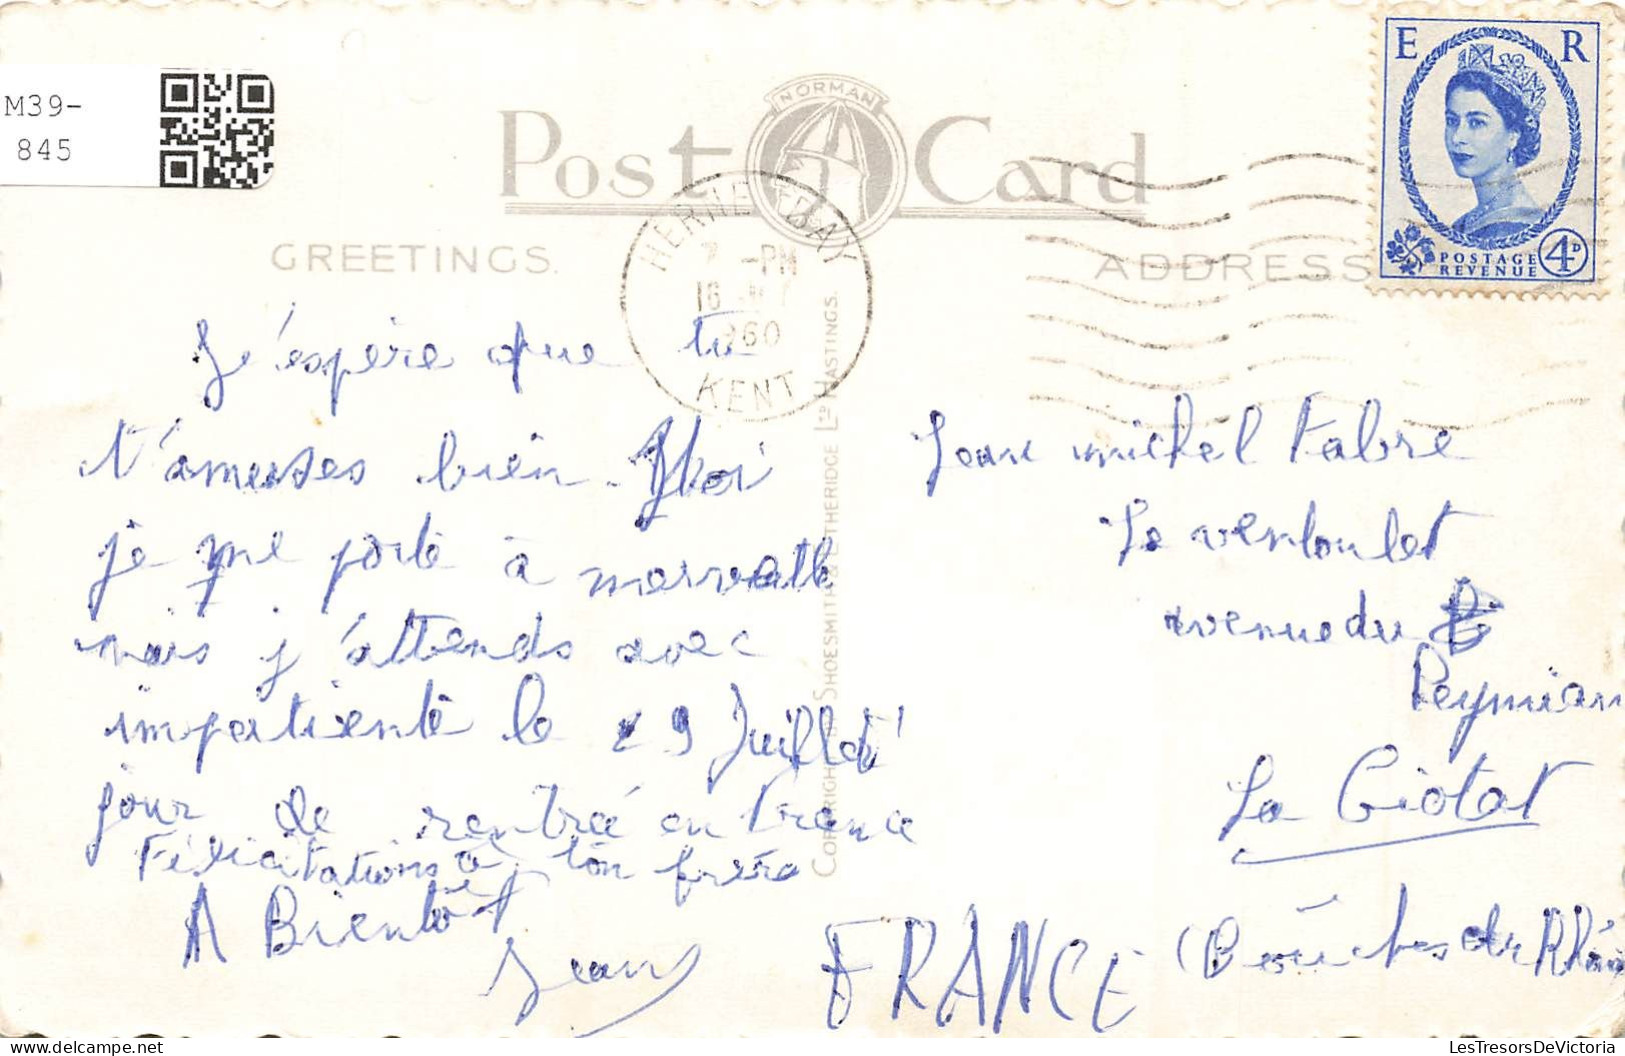 M39-
845
NORMAN
Post Card
E R
POSTAGE
REVENUE
4D
HERNE BAY
7 -PM
16
1960
KENT
GREETINGS.
ADDRESS
J'espère que tu
t'amuses bien. Moi
je me porte à merveille
mais j'attends avec
impatiente le 29 Juillet
jour de rentrée en France
Félicitations à ton frère
A Bientôt
Jean
COPYRIGHT SHOESMITH & ETHERIDGE LTD HASTINGS.
Jean michel Fabre
Le ventoulet
avenue du
Peymian
La Ciotat
(Bouches du Rhône
FRANCE
LesTresorsDeVictoria